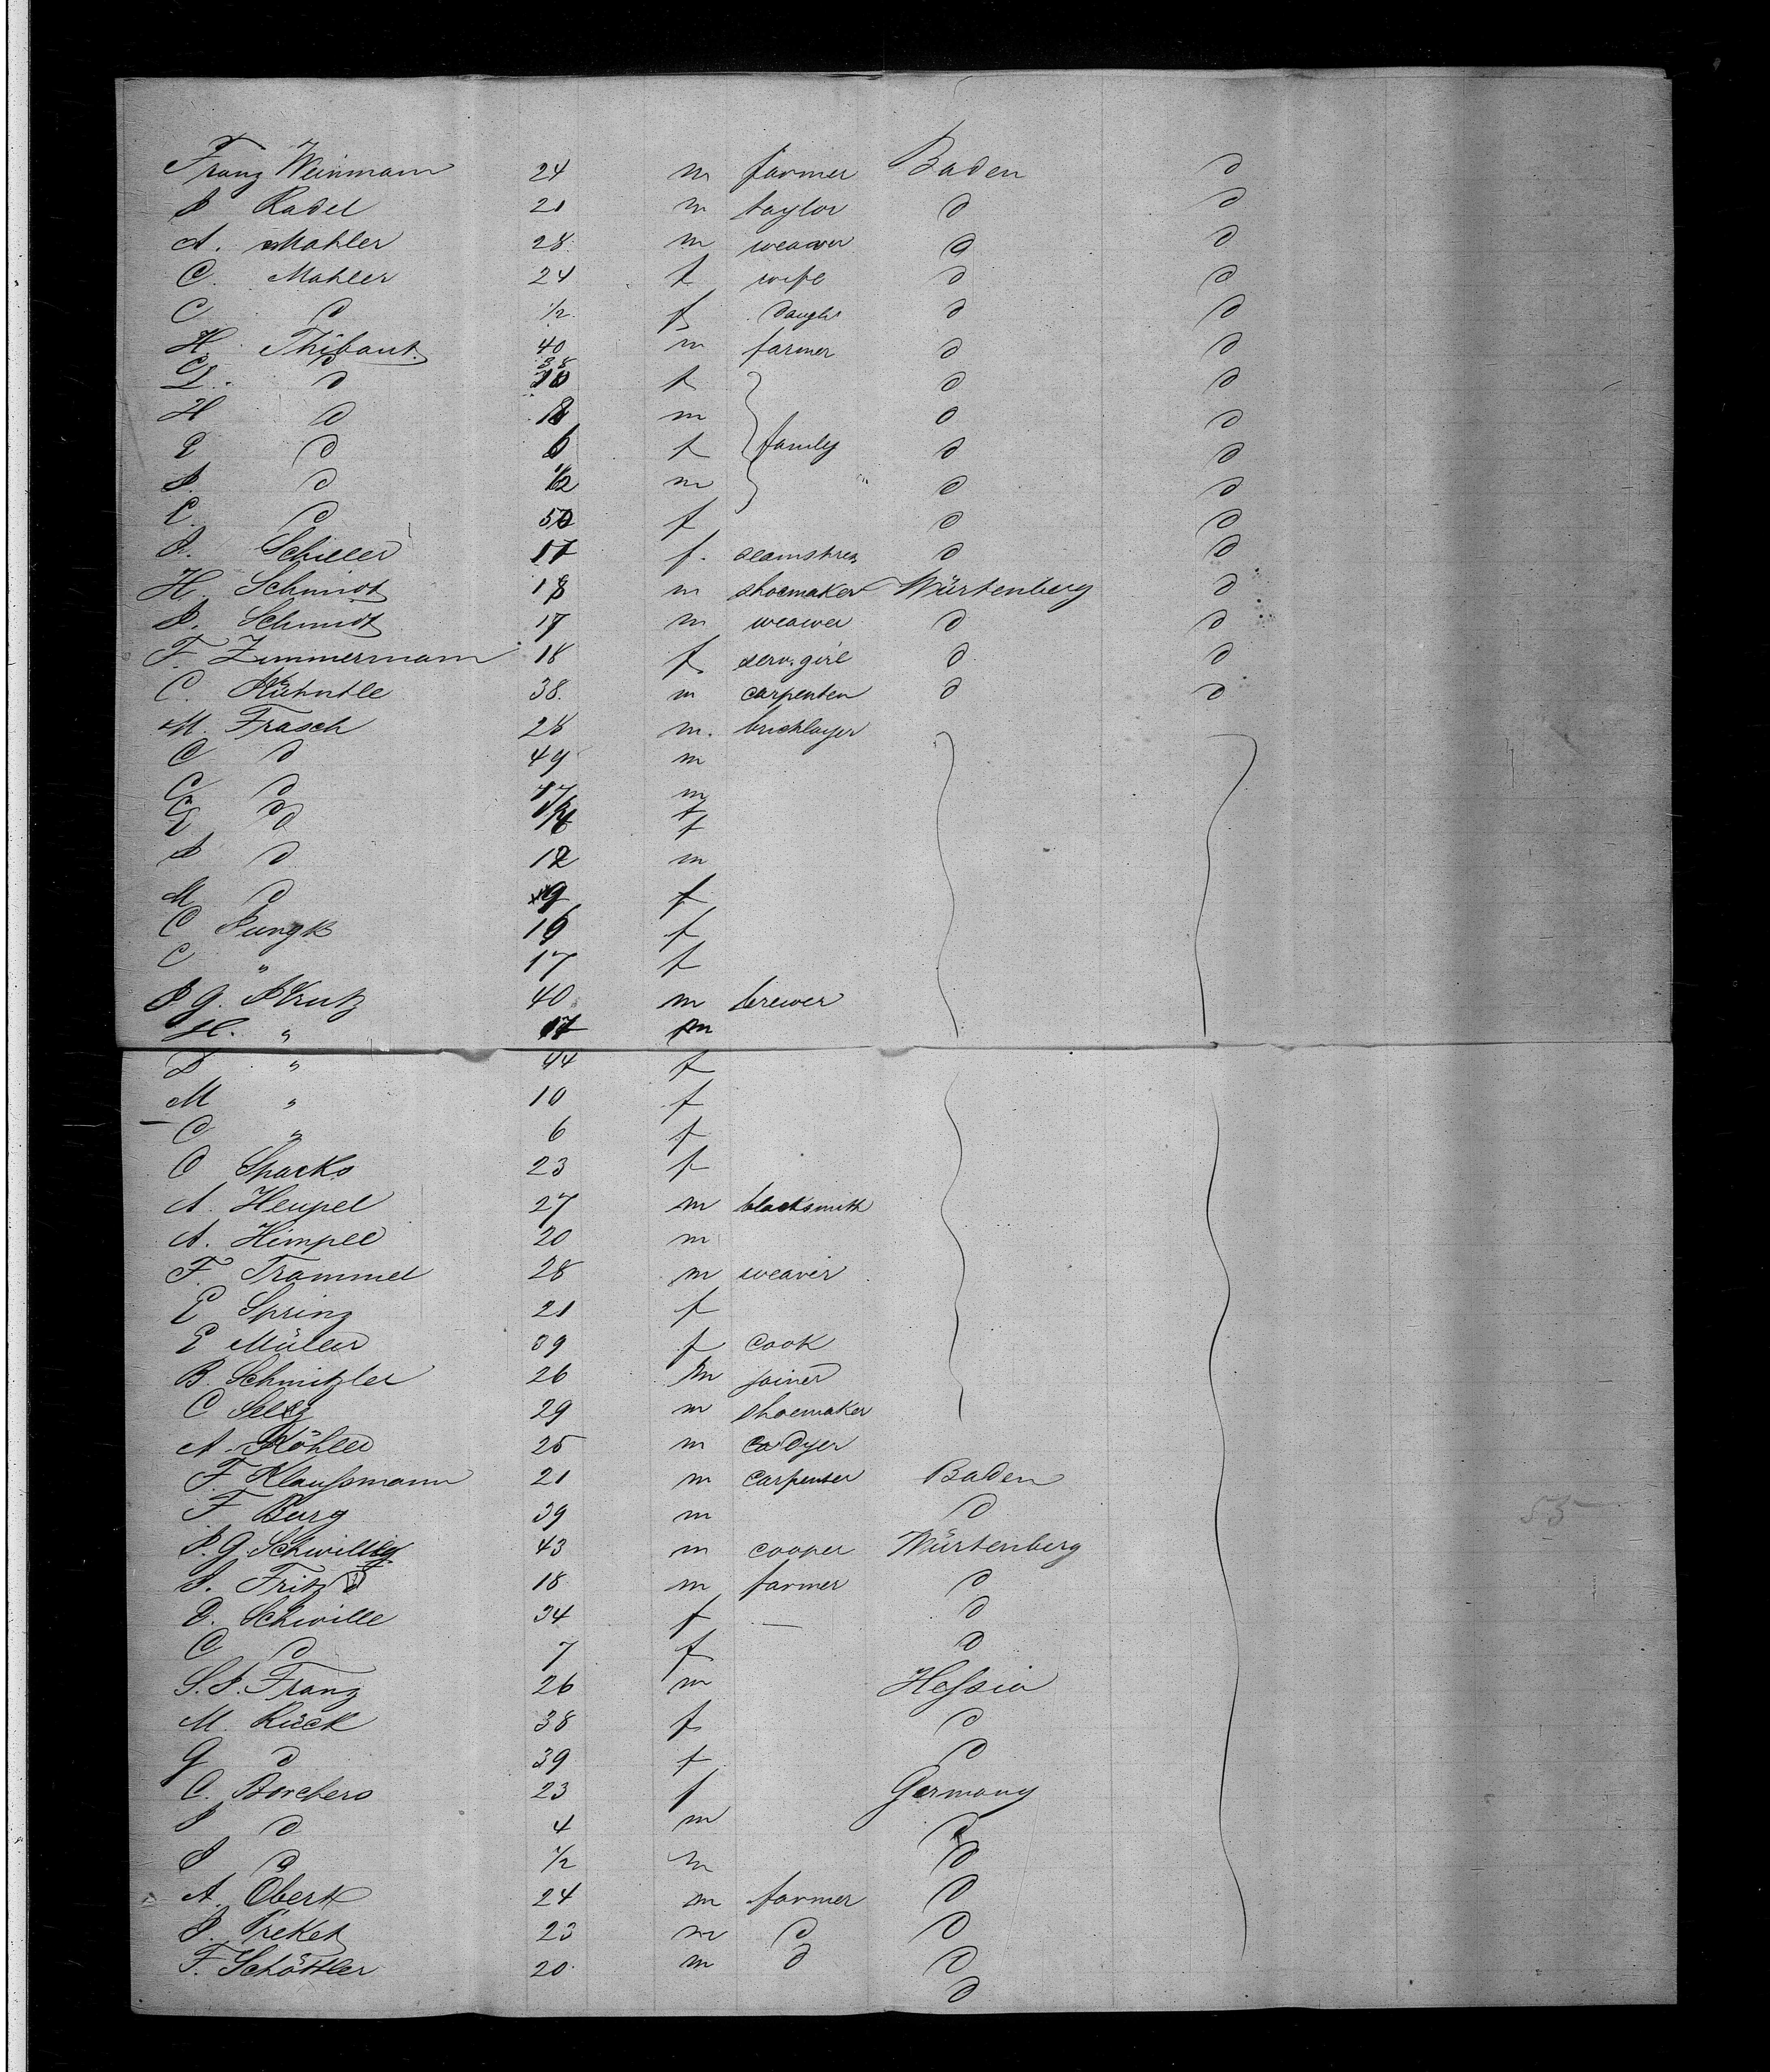 Franz Weinmann 24 m farmer Baden d
J Radel 21 m taylor d d
A. Mahler 28 m weawer d d
C. Mahler 24 f wife d d
C d 1/2 f daugh d d
H. Thibaut 40 m farmer d d
L. d f d d
H d m d d
E d 6 f family d d
J. d m d d
E. d 50 f d d
J. Schiller 17 f. seamstress d d
H. Schmidt 18 m shoemaker Würtenberg d
J. Schmidt 17 m weawer d d
F. Zimmermann 18 f serv. girl d d
C. 38. m carpenter d d
M. Frasch 28 m. bricklayer
C d 49 m
C d 17 m
E d f
J d 12 m
M d 9 f
C Jungk 16 f
C " 17 f
J. G. 40 m brewer
H. " 17 m
L " 44 f
M " 10 f
C " 6 f
C Sparks 23 f
A. Heupel 27 m blacksmith
A. Himpel 20 m
F. Trammel 28 m weaver
E Spring 21 f
E Müller 39 f cook
B. Schmitzler 26 m joiner
C Selig 29 m shoemaker
A. Köhler 25 m dyer
F. Klaußmann 21 m carpenter Baden
F Burg 39 m d
J. G. Schwille 43 m cooper Würtenberg
J. Fritz 18 m farmer d
D. Schwille 34 f — d
C d 7 f d
S. J. Franz 26 m Heßia
M. Rück 38 f d
G d 39 f d
C. Borchers 23 f Germany
J d 4 m d
J d 1/2 m d
A. Obert 24 m farmer d
J. Preket 23 m d d
F. Schöttler 20 m d d
d
53